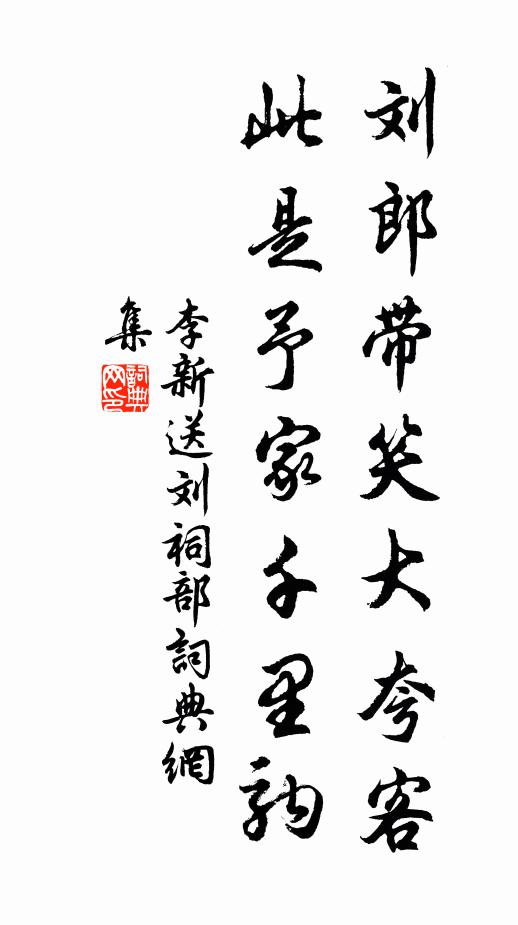 刘郎带笑大夸客
此是予家千里驹
李新送刘祠部詞典網
集
詞典网印